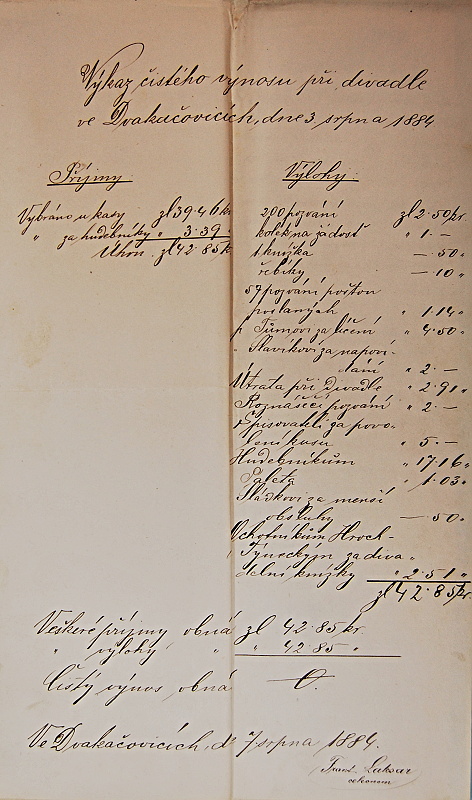 Výkaz čistého výnosu při divadle
ve Dvakačovicích, dne 3 srpna 1884
Příjmy:
Vybráno u kasy zl 39.46 kr
" za hudebníky " 3.39 "
Úhrn zl 42.85 k
Výlohy:
200 pozvání zl 2.50 kr.
kolek na žádosť " 1.—
1 knížka — 50 "
řebíky — 10 "
57 pozvání poštou
poslaných " 1.14 "
p Tůmovi za líčení " 4.50 "
" Slavíkovi za napoví-
dání " 2.—
Útrata při divadle " 2.91 "
Roznášeči pozvání " 2.—
Spisovateli za povo-
lení kusu " 5.—
Hudebníkům " 17.16 "
Paleta " 1.03 "
Sládkovi za menší
obsluhy — 50 "
Ochotníkům Hroch-
Týneckým za diva-
delní knížky " 2.51 "
zl 42.85 kr.
Veškeré příjmy obná zl 42.85 kr.
" výlohy " " 42.85 "
Čistý výnos obná 0.
Ve Dvakačovicích, d 7 srpna 1884.
Frant. Laksar